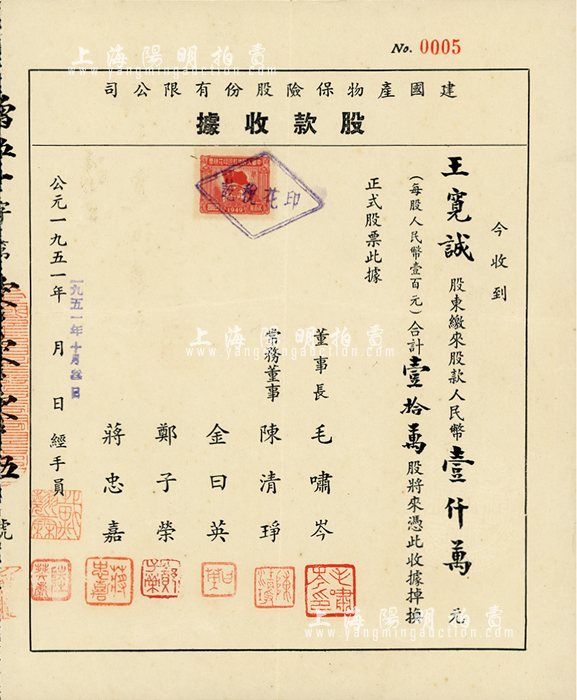 No. 0005
建國產物保險股份有限公司
股款收據
今收到
王寬誠 股東繳來股款人民幣壹仟萬元
（每股人民幣壹百元）合計壹拾萬股將來憑此收據掉換
正式股票此據
印花稅訖
1949
董事長 毛嘯岑
常務董事 陳清琤
金曰英
鄭子榮
蔣忠嘉
公元一九五一年 月 日 經手員
一九五一年十月 日
號
上海陽明拍賣
www.yangmingauction.com
上海陽明拍賣
www.yangmingauction.com
上海陽明拍賣
www.yangmingauction.com